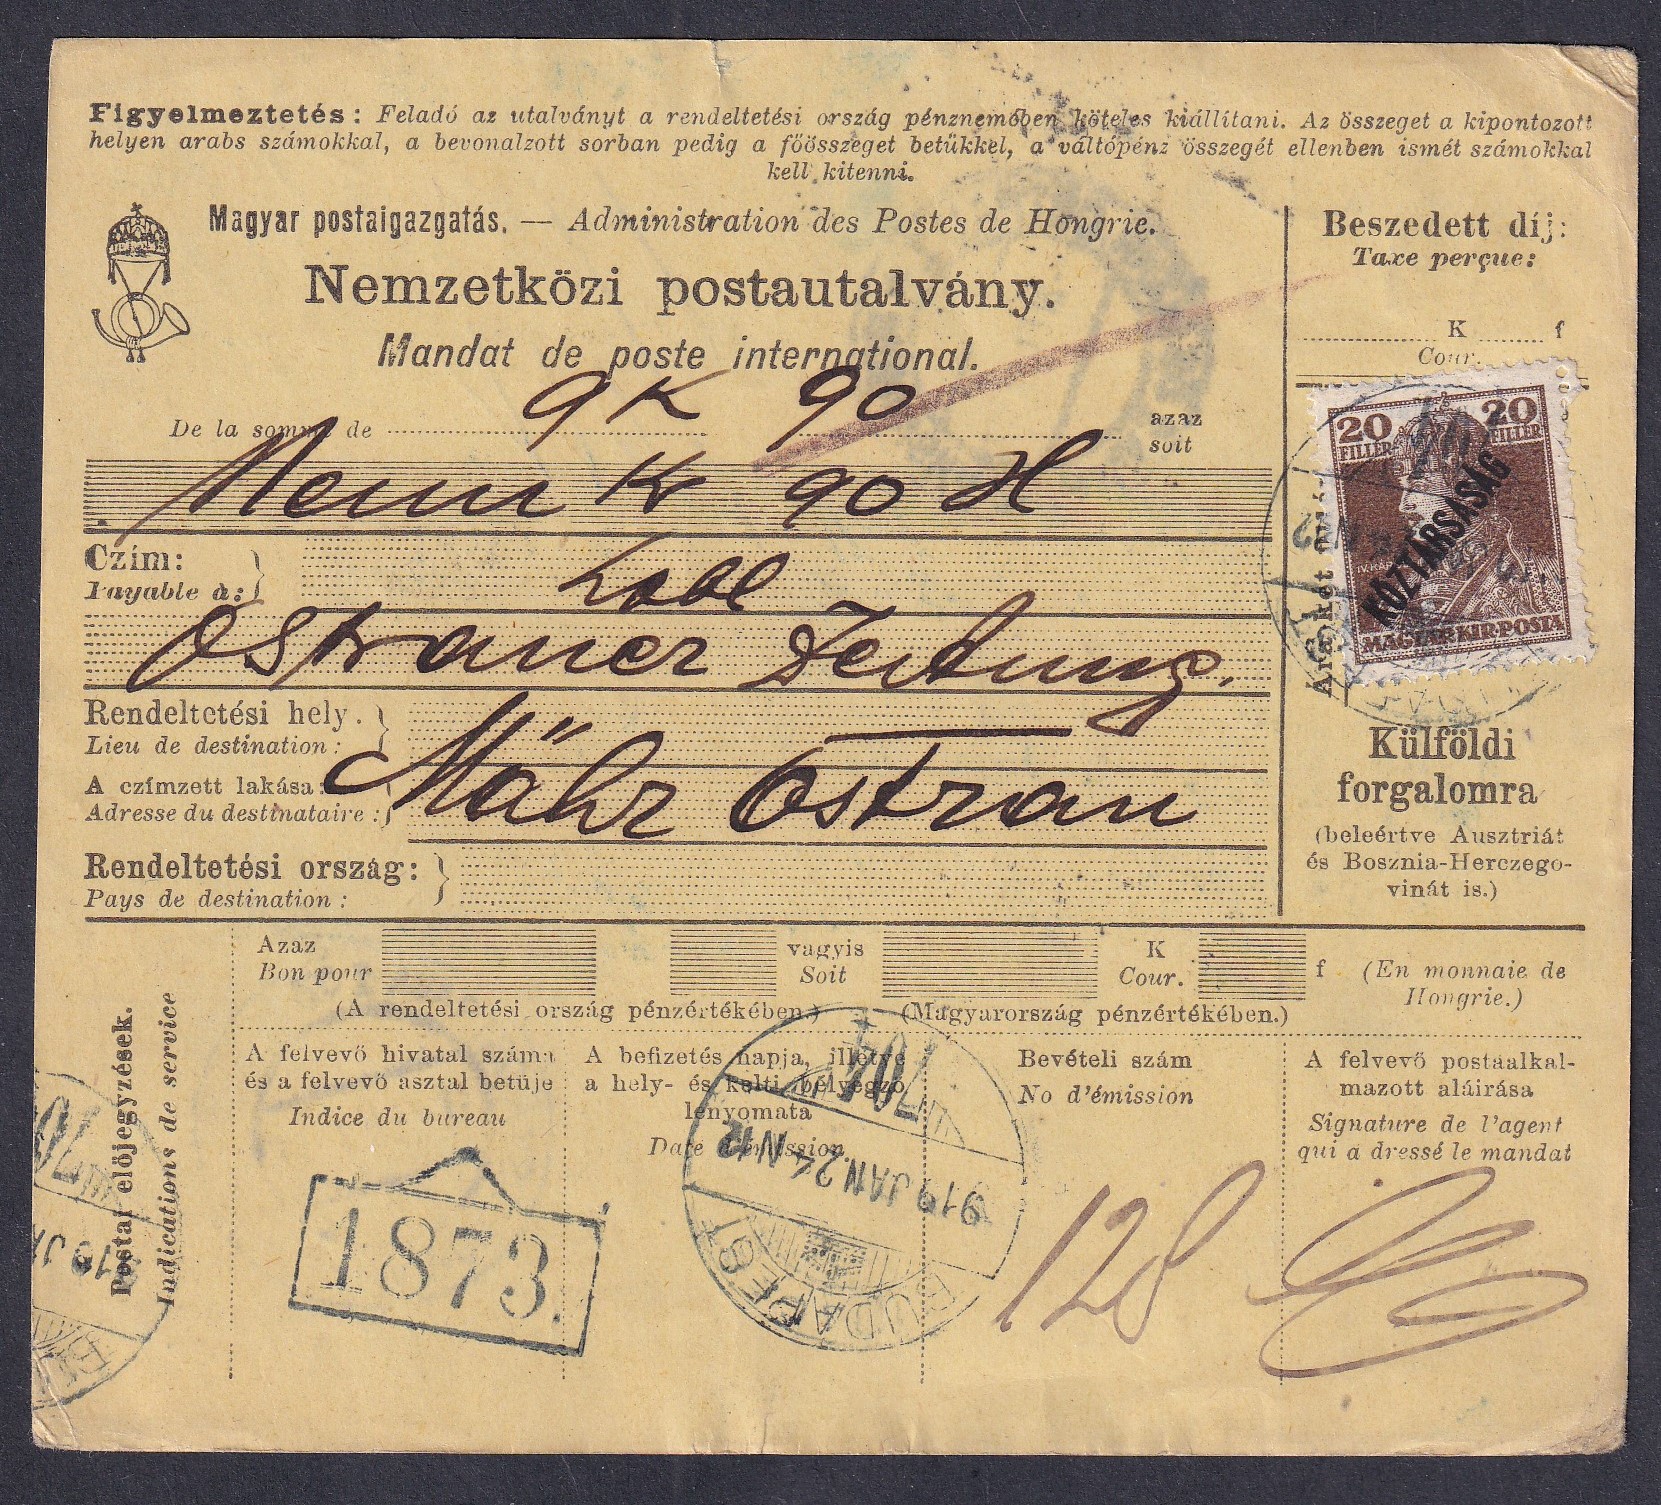 Figyelmeztetés: Feladó az utalványt a rendeltetési ország pénznemében köteles kiállítani. Az összeget a kipontozott
helyen arabs számokkal, a bevonalzott sorban pedig a főösszeget betükkel, a váltópénz összegét ellenben ismét számokkal
kell kitenni.
Magyar postaigazgatás. — Administration des Postes de Hongrie.
Nemzetközi postautalvány.
Mandat de poste international.
De la somme de 9 K 90 azaz
soit
Neun Kr 90 H
Czím:
Payable à:
Ostrauer Zeitung.
Rendeltetési hely.
Lieu de destination:
A czímzett lakása:
Adresse du destinataire:
Mähr Ostrau
Rendeltetési ország:
Pays de destination:
Beszedett díj:
Taxe perçue:
K f
Cour.
20 FILLÉR 20 FILLÉR
KÖZTÁRSASÁG
MAGYAR KIR. POSTA
Külföldi
forgalomra
(beleértve Ausztriát
és Bosznia-Herczego-
vinát is.)
Azaz vagyis K f (En monnaie de
Bon pour Soit Cour. Hongrie.)
(A rendeltetési ország pénzértékében.) (Magyarország pénzértékében.)
Postai előjegyzések.
Indications de service
A felvevő hivatal száma
és a felvevő asztal betüje
Indice du bureau
1873.
A befizetés napja, illetve
a hely- és kelti bélyegző
lenyomata
Date d'émission.
704
919 JAN 24 N 12
BUDAPEST
Bevételi szám
No d'émission
128
A felvevő postaalkal-
mazott aláirása
Signature de l'agent
qui a dressé le mandat
704
919 JA